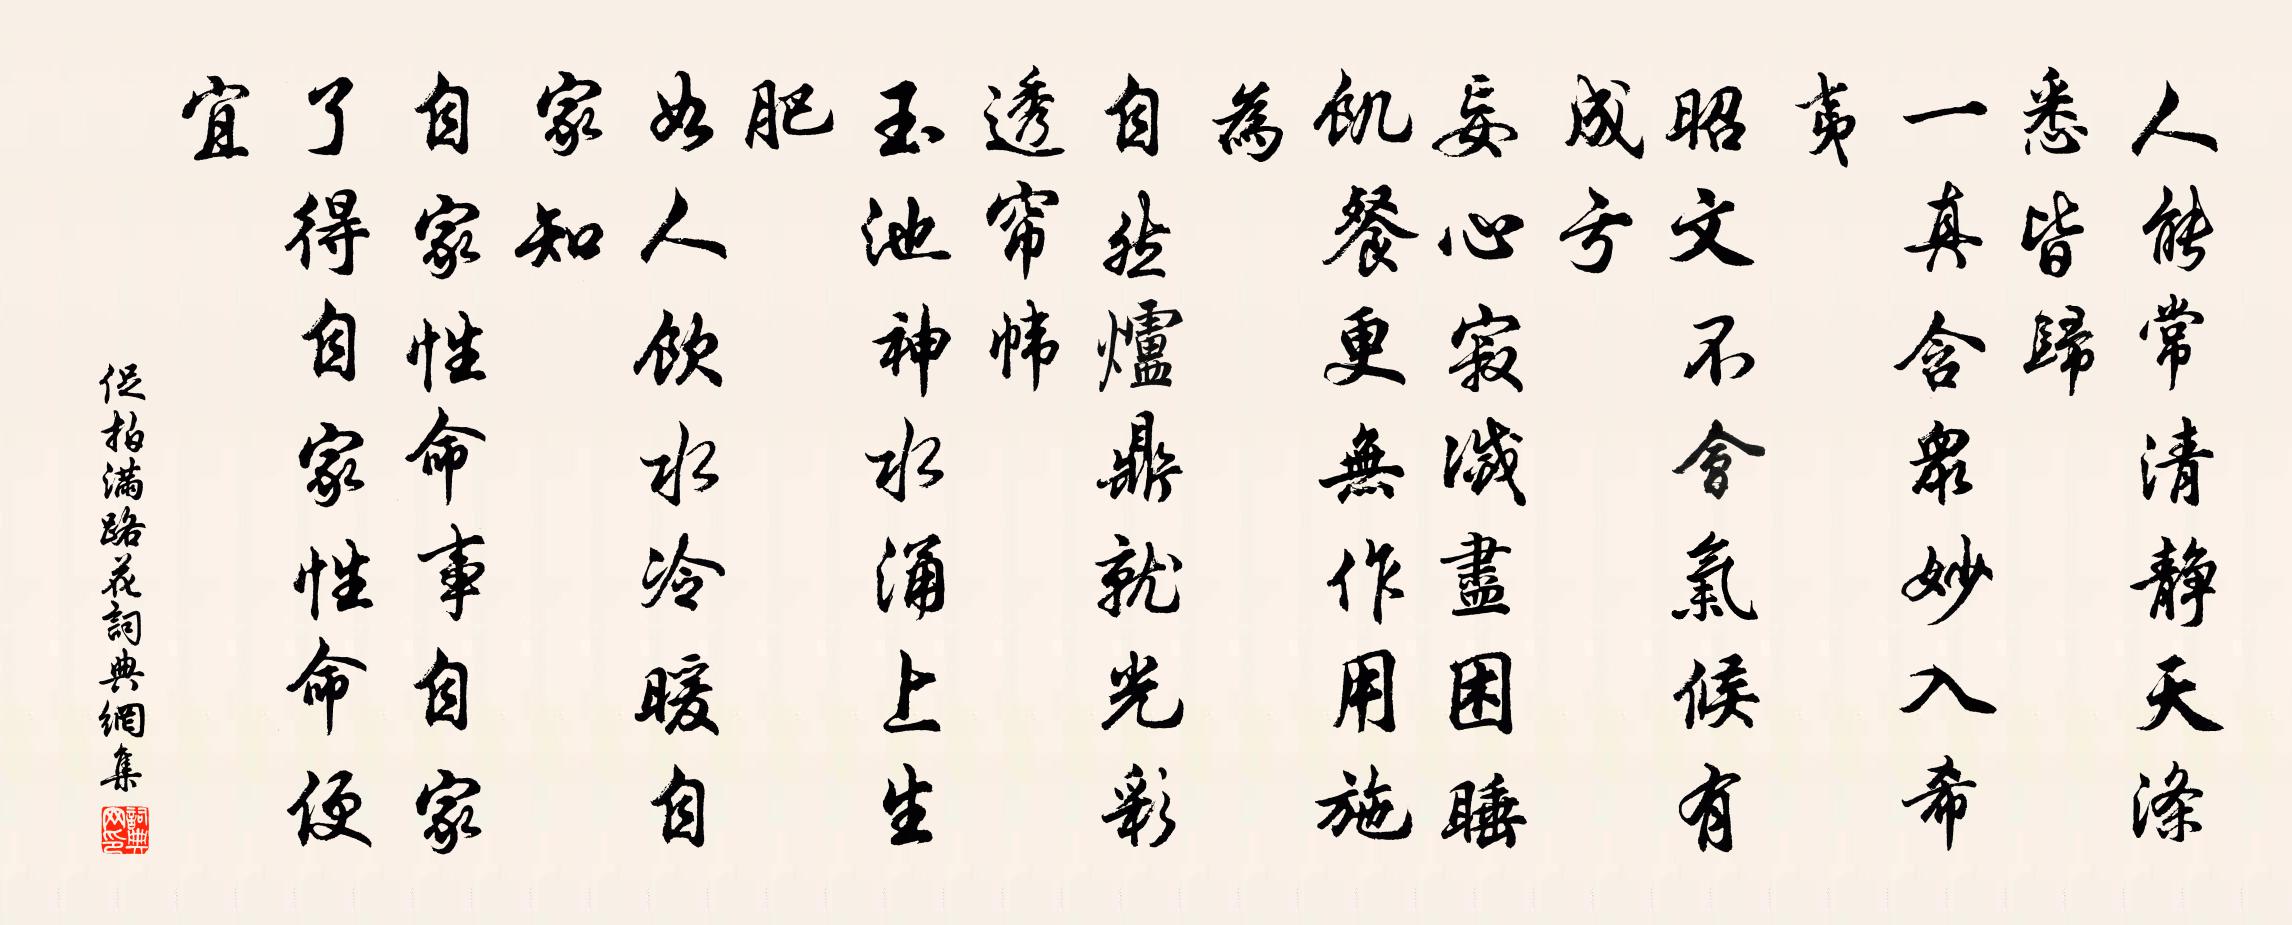 人能常清静天滌
悉皆歸
一真含眾妙入希
夷
昭文不會氣候有
成亏
妄心寂滅盡困睡
飢餐更無作用施
為
自然爐鼎就光彩
透帘帏
玉池神水涌上生
肥
如人飲水冷暖自
家知
自家性命事自家
了得自家性命便
宜
促拍满路花詞典網集
詞典網印